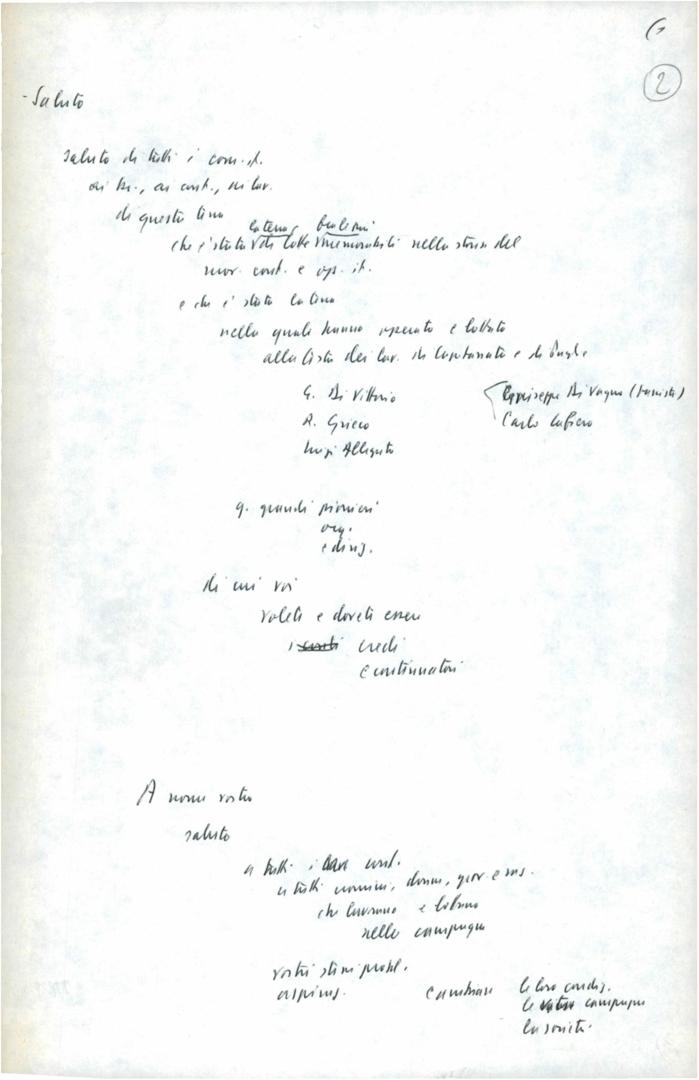 2
- Saluto
saluto di tutti i com. it.
ai br., ai cont., ai lav.
di questa terra
che è stata di lotte memorabili nella storia del
mov. cont. e op. it.
e che è stata la terra
nella quale hanno operato e lottato
alla testa dei lav. di Capitanata e di Puglia
G. Di Vittorio
R. Grieco
Luigi Allegato
Giuseppe Di Vagno
Carlo Cafiero
q. grandi pionieri
org.
e dirig.
di cui voi
volete e dovete essere
i eredi
e continuatori
A nome vostro
saluto
a tutti i cont.
a tutti uomini, donne, giov. e rag.
che lavorano e lottano
nelle campagne
vostri stessi probl.
aspiraz.
cambiare le loro condiz.
le campagne
la società.